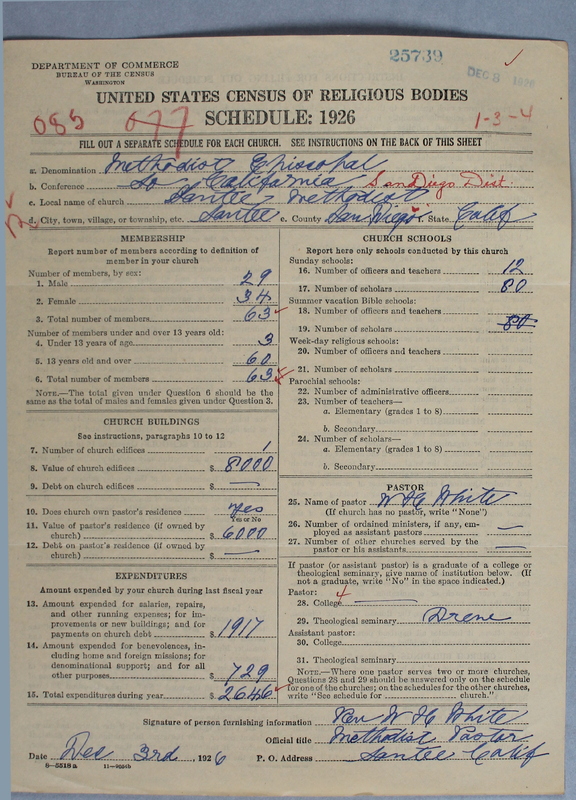 25739
DEC 8 1926
DEPARTMENT OF COMMERCE
BUREAU OF THE CENSUS
WASHINGTON
UNITED STATES CENSUS OF RELIGIOUS BODIES
SCHEDULE: 1926
085 077 1-3-4
FILL OUT A SEPARATE SCHEDULE FOR EACH CHURCH. SEE INSTRUCTIONS ON THE BACK OF THIS SHEET
a. Denomination Methodist Episcopal
b. Conference So California San Diego Dist.
c. Local name of church Santee Methodist
d. City, town, village, or township, etc. Santee e. County San Diego f. State Calif
MEMBERSHIP
Report number of members according to definition of
member in your church
Number of members, by sex:
1. Male 29
2. Female 34
3. Total number of members 63
Number of members under and over 13 years old:
4. Under 13 years of age 3
5. 13 years old and over 60
6. Total number of members 63
NOTE.—The total given under Question 6 should be the
same as the total of males and females given under Question 3.
CHURCH BUILDINGS
See instructions, paragraphs 10 to 12
7. Number of church edifices 1
8. Value of church edifices $ 8000
9. Debt on church edifices $ —
10. Does church own pastor's residence yes
Yes or No
11. Value of pastor's residence (if owned by
church) $ 6000
12. Debt on pastor's residence (if owned by
church) $ —
EXPENDITURES
Amount expended by your church during last fiscal year
13. Amount expended for salaries, repairs,
and other running expenses; for im-
provements or new buildings; and for
payments on church debt $ 1917
14. Amount expended for benevolences, in-
cluding home and foreign missions; for
denominational support; and for all
other purposes $ 729
15. Total expenditures during year $ 2646
CHURCH SCHOOLS
Report here only schools conducted by this church
Sunday schools:
16. Number of officers and teachers 12
17. Number of scholars 80
Summer vacation Bible schools:
18. Number of officers and teachers
19. Number of scholars 80
Week-day religious schools:
20. Number of officers and teachers
21. Number of scholars
Parochial schools:
22. Number of administrative officers
23. Number of teachers—
a. Elementary (grades 1 to 8)
b. Secondary
24. Number of scholars—
a. Elementary (grades 1 to 8)
b. Secondary
PASTOR
25. Name of pastor W H White
(If church has no pastor, write "None")
26. Number of ordained ministers, if any, em-
ployed as assistant pastors —
27. Number of other churches served by the
pastor or his assistants —
If pastor (or assistant pastor) is a graduate of a college or
theological seminary, give name of institution below. (If
not a graduate, write "No" in the space indicated.)
Pastor: 4
28. College —
29. Theological seminary Drene
Assistant pastor:
30. College
31. Theological seminary
NOTE.—Where one pastor serves two or more churches,
Questions 28 and 29 should be answered only on the schedule
for one of the churches; on the schedules for the other churches,
write "See schedule for church."
Signature of person furnishing information Rev W H White
Official title Methodist Pastor
Date Dec 3rd, 1926 P. O. Address Santee Calif
8—5518a